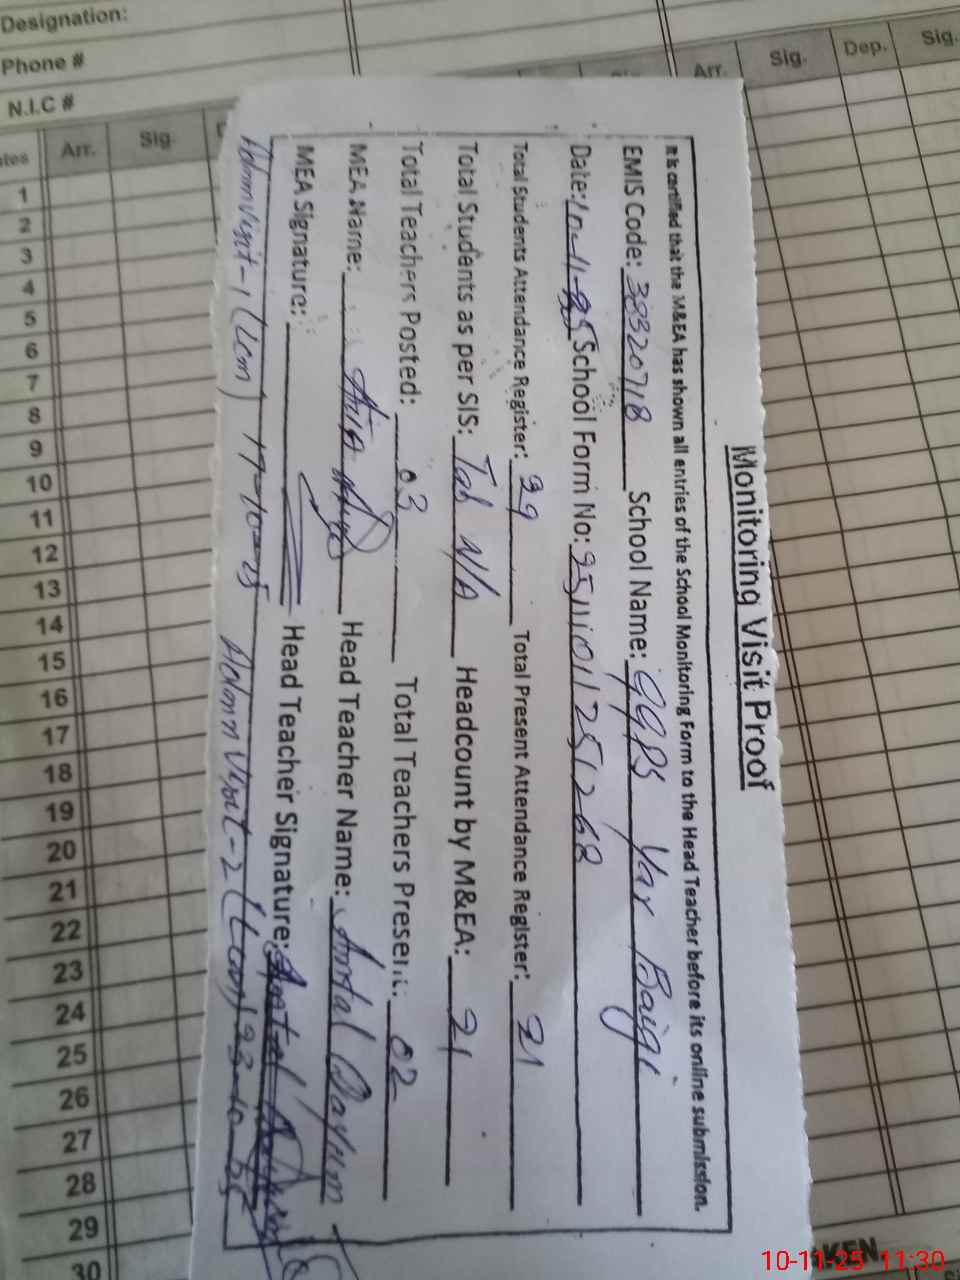 Designation:
Phone #
N.I.C #
Arr. Sig. Arr. Sig. Dep. Sig.
Monitoring Visit Proof
It is certified that the M&EA has shown all entries of the School Monitoring Form to the Head Teacher before its online submission.
EMIS Code: 38320718 School Name: GGPS Yar Baigi
Date: 10-11-25 School Form No:
Total Students Attendance Register: 29 Total Present Attendance Register: 21
Total Students as per SIS: Tab N/A Headcount by M&EA: 21
Total Teachers Posted: 03 Total Teachers Present: 02
MEA Name: Head Teacher Name:
MEA Signature: Head Teacher Signature:
Admn Visit-1 17-10-25 Admn Visit-2 23-10-25
1
2
3
4
5
6
7
8
9
10
11
12
13
14
15
16
17
18
19
20
21
22
23
24
25
26
27
28
29
30
10-11-25 11:30